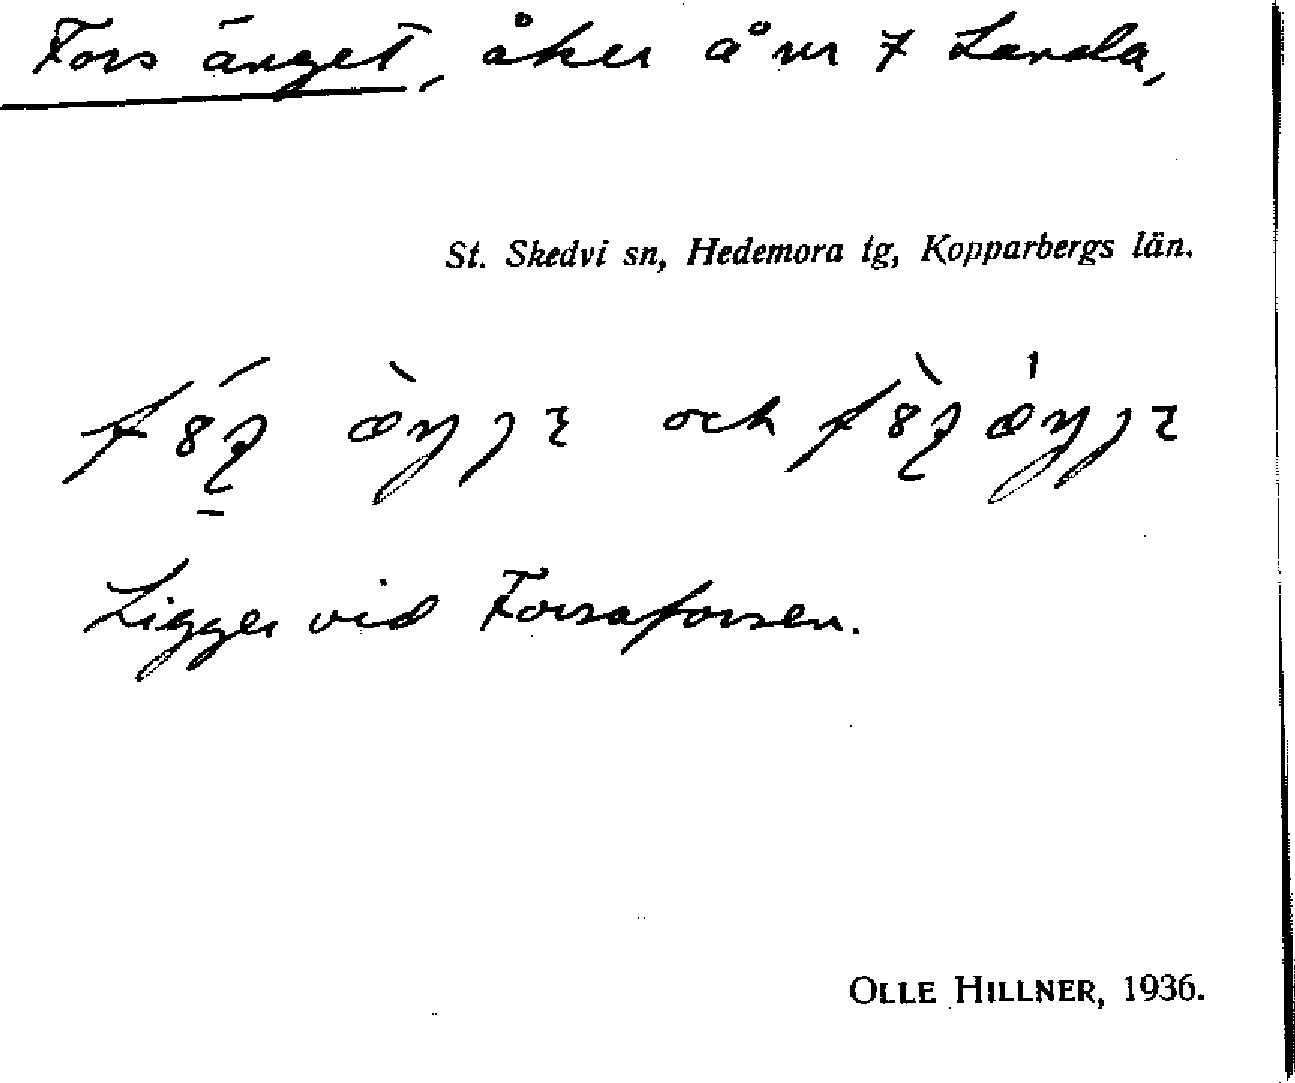 Forsänget, åker å nr 7 Landa,
St. Skedvi sn, Hedemora tg, Kopparbergs län.
och
Ligger vid Forsaforsen.
OLLE HILLNER, 1936.